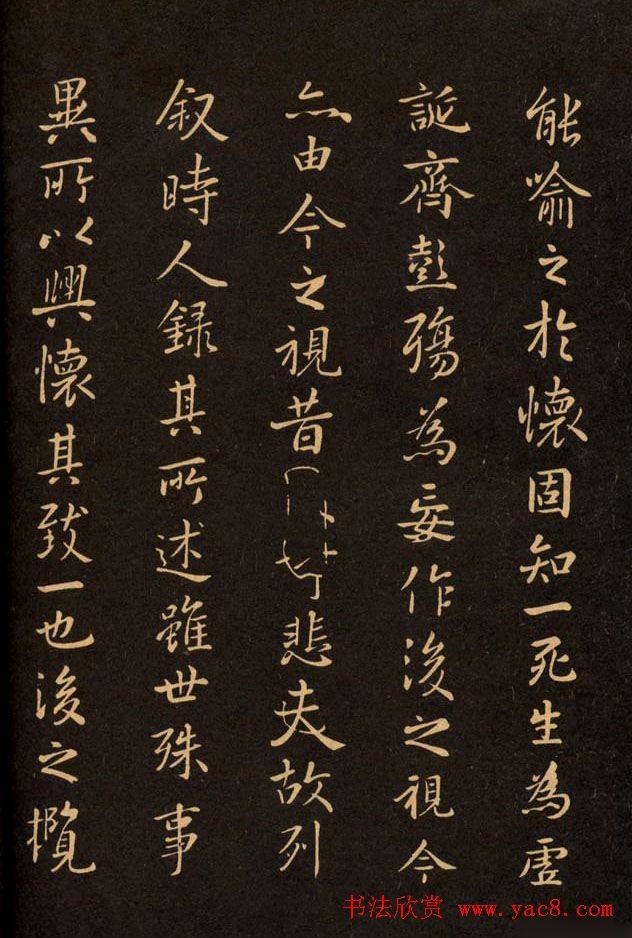 能喻之於懷固知一死生為虛
誕齊彭殤為妄作後之視今
亦由今之視昔悲夫故列
叙時人録其所述雖世殊事
異所以興懷其致一也後之攬
书法欣赏 www.yac8.com